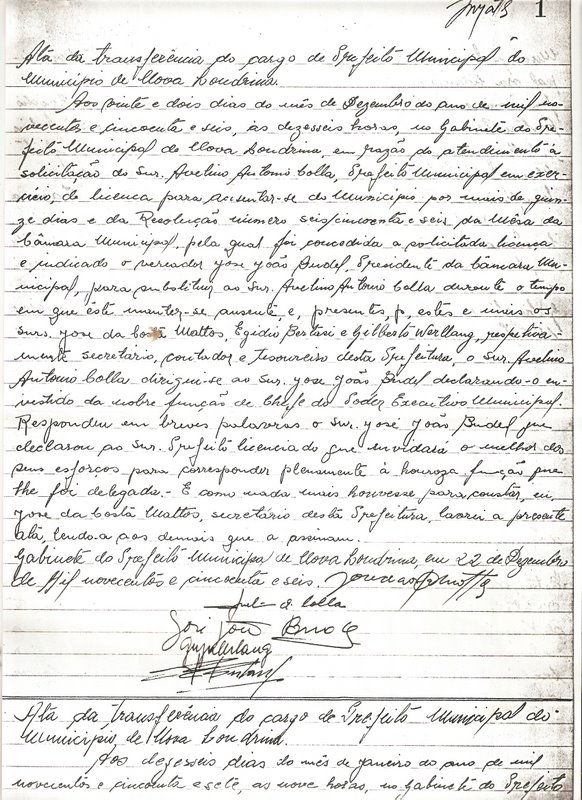 1
Ata da transferência do cargo de Prefeito Municipal do
Municipio de Nova Londrina.
Aos vinte e dois dias do mês de Dezembro do ano de mil no-
vecentos e cincoenta e seis, as dezesseis horas, no Gabinete do Pre-
feito Municipal de Nova Londrina, em razão do atendimento à
solicitação do Snr. Avelino Antonio Colla, Prefeito Municipal em exer-
cicio, de licença para ausentar-se do Municipio por mais de quin-
ze dias e da Resolução número seis/cincoenta e seis da Mesa da
Câmara Municipal, pela qual foi concedida a solicitada licença
e indicado o vereador José João Budel, Presidente da Câmara Mu-
nicipal, para substituir ao Snr. Avelino Antonio Colla durante o tempo
em que este manter-se ausente e, presentes, estes e mais os
snrs. José da Costa Mattos, Egidio Bertasi e Gilberto Werllang, respetiva-
mente secretário, contador e tesoureiro desta Prefeitura, o Snr. Avelino
Antonio Colla dirigiu-se ao Snr. José João Budel declarando-o en-
vestido da nobre função de Chefe do Poder Executivo Municipal.
Respondeu em breves palavras o Snr. José João Budel que
declarou ao Snr. Prefeito licenciado que envidará o melhor dos
seus esforços para corresponder plenamente à houroza função que
lhe foi delegada.- E como nada mais houvesse para constar, eu,
José da Costa Mattos, secretário desta Prefeitura, lavrei a presente
ata, lendo-a aos demais que a assinam.
Gabinete do Prefeito Municipal de Nova Londrina, em 22 de Dezembro
de Mil novecentos e cincoenta e seis.
Colla
José João Budel
Ata da transferência do cargo de Prefeito Municipal do
Municipio de Nova Londrina.
Aos dezesseis dias do mês de janeiro do ano de mil
novecentos e cincoenta e sete, as nove horas, no Gabinete do Prefeito